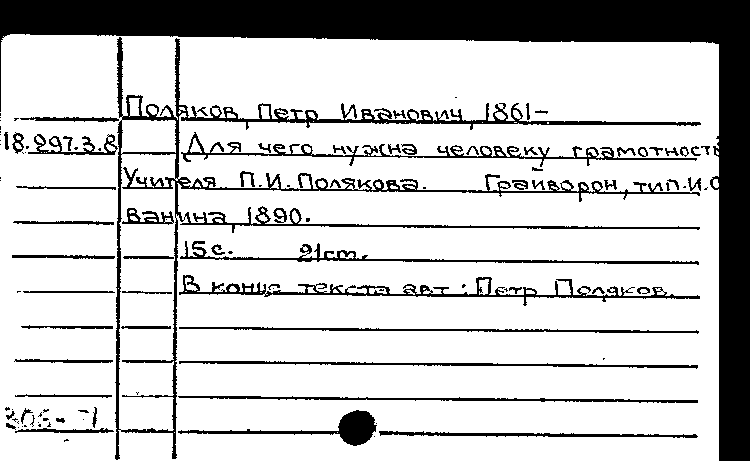 Поляков, Петр Иванович, 1861-
18.297.3.8 Для чего нужна человеку грамотность
Учителя П.И.Полякова. Грайворон, тип.И.С
ванина, 1890.
15с. 21cm.
В конце текста авт: Петр Поляков.